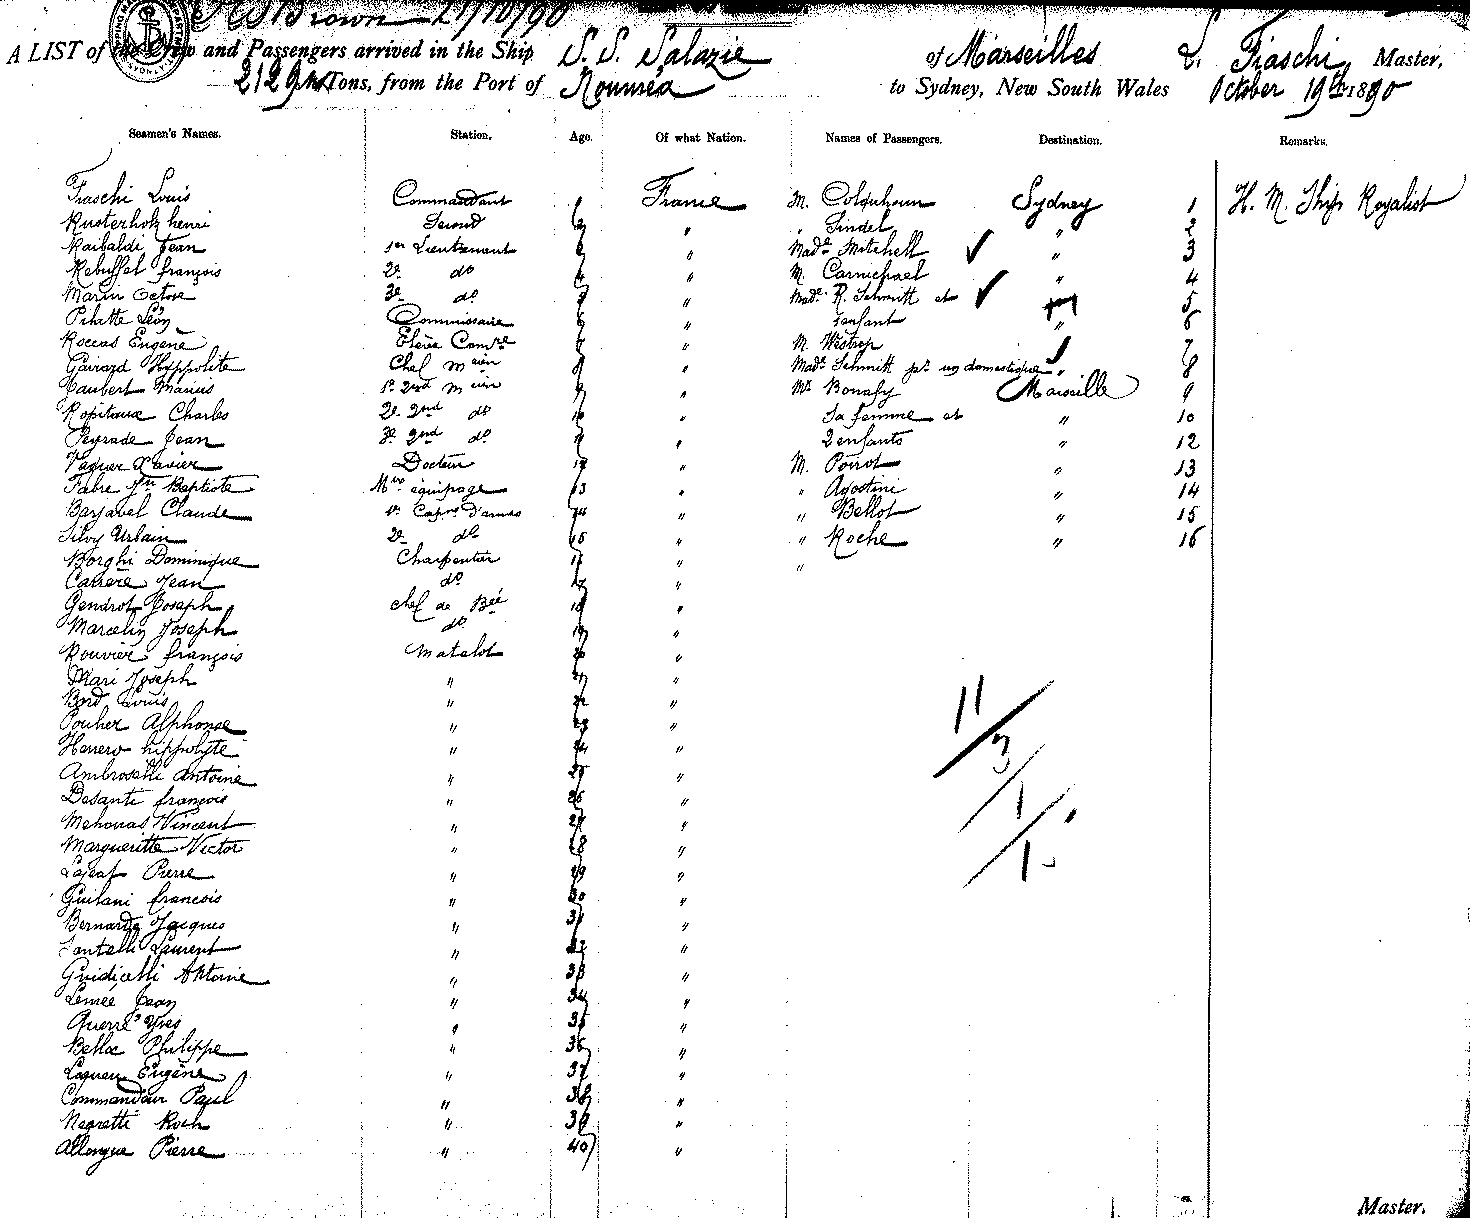 Brown 21/10/90
A LIST of the Crew and Passengers arrived in the Ship S. S. Salazie of Marseilles L. Fiaschi, Master,
2129 Tons, from the Port of Nouméa to Sydney, New South Wales October 19th 1890
Seamen's Names. Station. Age. Of what Nation. Names of Passengers. Destination. Remarks.
Fiaschi Louis Commandant 1 France M. Colquhoun Sydney 1 H. M. Ship Royalist
Rusterholz henri Second 2 " " Tindel " 2
Raibaldi Jean 1er Lieutenant 3 " Made Mitchell " 3
Rebuffel françois 2e do 4 " M. Carmichael " 4
Marin Octove 3e do 5 " Made R. Schmitt et 5
Pilatte Léon Commissaire 6 " 1 enfant " 6
Roccas Eugene Elève Comre 7 " M. Westrop 7
Gairard Hyppolite Chef mcien 8 " Made Schmitt pr un domestique " 8
Jaubert Marius 1er 2nd mcien 9 " Mr Bonafy Marseille 9
Ropitaux Charles 2e 2nd do 10 " Sa femme et " 10
Peyrade Jean 3e 2nd do 11 " 2 enfants " 12
Vaguer Xavier Docteur 12 " M. Poirot " 13
Fabre Jn Baptiste Mtre équipage 13 " " Agostini " 14
Barjavel Claude 1er Capne D'armes 14 " " Bellot " 15
Silvy Urbain 2e do 15 " " Roche " 16
Borghi Dominique Charpentier 16 " "
Carrere Jean do 17 "
Gendrot Joseph chef de Bée 18 "
Marcelin Joseph do 19 "
Rouvier françois Matelot 20 "
Mari Joseph " 21 "
Bord Louis " 22 "
Pouher Alphonse " 23 "
Herrero hippolyte " 24 "
Ambroselli antoine " 25 "
Desanti françois " 26 "
Mehouas Vincent " 27 "
Margueritte Victor " 28 "
Pierre " 29 "
Guilani francois " 30 "
Bernarde Jacques " 31 "
Santelli Laurent " 32 "
Guidicelli Antoine " 33 "
Lemée Jean " 34 "
Querré Yves " 35 "
Belloc Philippe " 36 "
Eugène " 37 "
Commandeur Paul " 38 "
Negretti Roch " 39 "
Allongue Pierre " 40 "
11/3/1/1
Master.